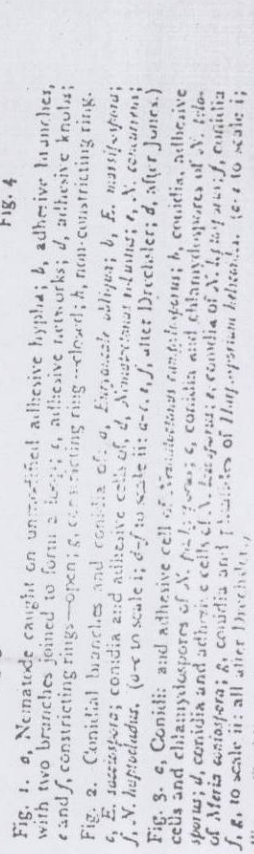 Fig. 4
Fig. 1. a, Nematode caught on unmodified adhesive hypha; b, adhesive branches,
with two branches joined to form a loop; c, adhesive networks; d, adhesive knobs;
e and f, constricting rings—open; g, constricting ring—closed; h, non-constricting ring.
Fig. 2. Conidial branches and conidia of: a, b, E.
c, E. conidia and adhesive cells of, d, e, N.
f, N. haptocladus. (a-c to scale i; d-f to scale ii: a-c, e, f, after Drechsler; d, after Jones.)
Fig. 3. a, Conidia and adhesive cell of b, conidia, adhesive
cells and chlamydospores of N. c, conidia and chlamydospores of N.
sporus; d, conidia and adhesive cells of N. e, conidia of N. f, conidia
of Meria coniospora; g, conidia and phialides of Harposporium helicoides. (a-e to scale i;
f, g, to scale ii: all after Drechsler.)